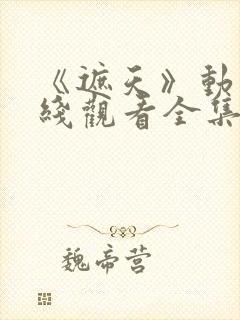 《遮天》動
綫觀看全集
魏帝营